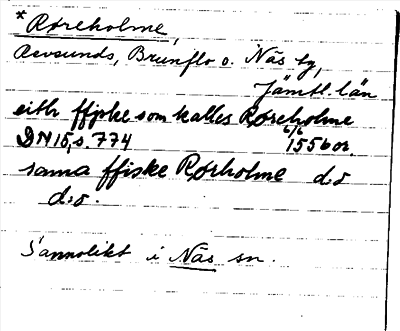 *Røreholme,
Revsunds, Brunflo o. Näs tg,
Jämtl. län
eith ffiske som kalles Røreholme
DN 15, s. 774 6/6 1556 or.
sama ffiske Rørholme d:o
d:o.
Sannolikt i Näs sn.